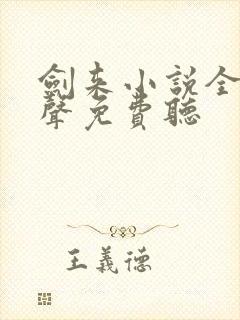 劍來小說全
聲免費聽
王義德